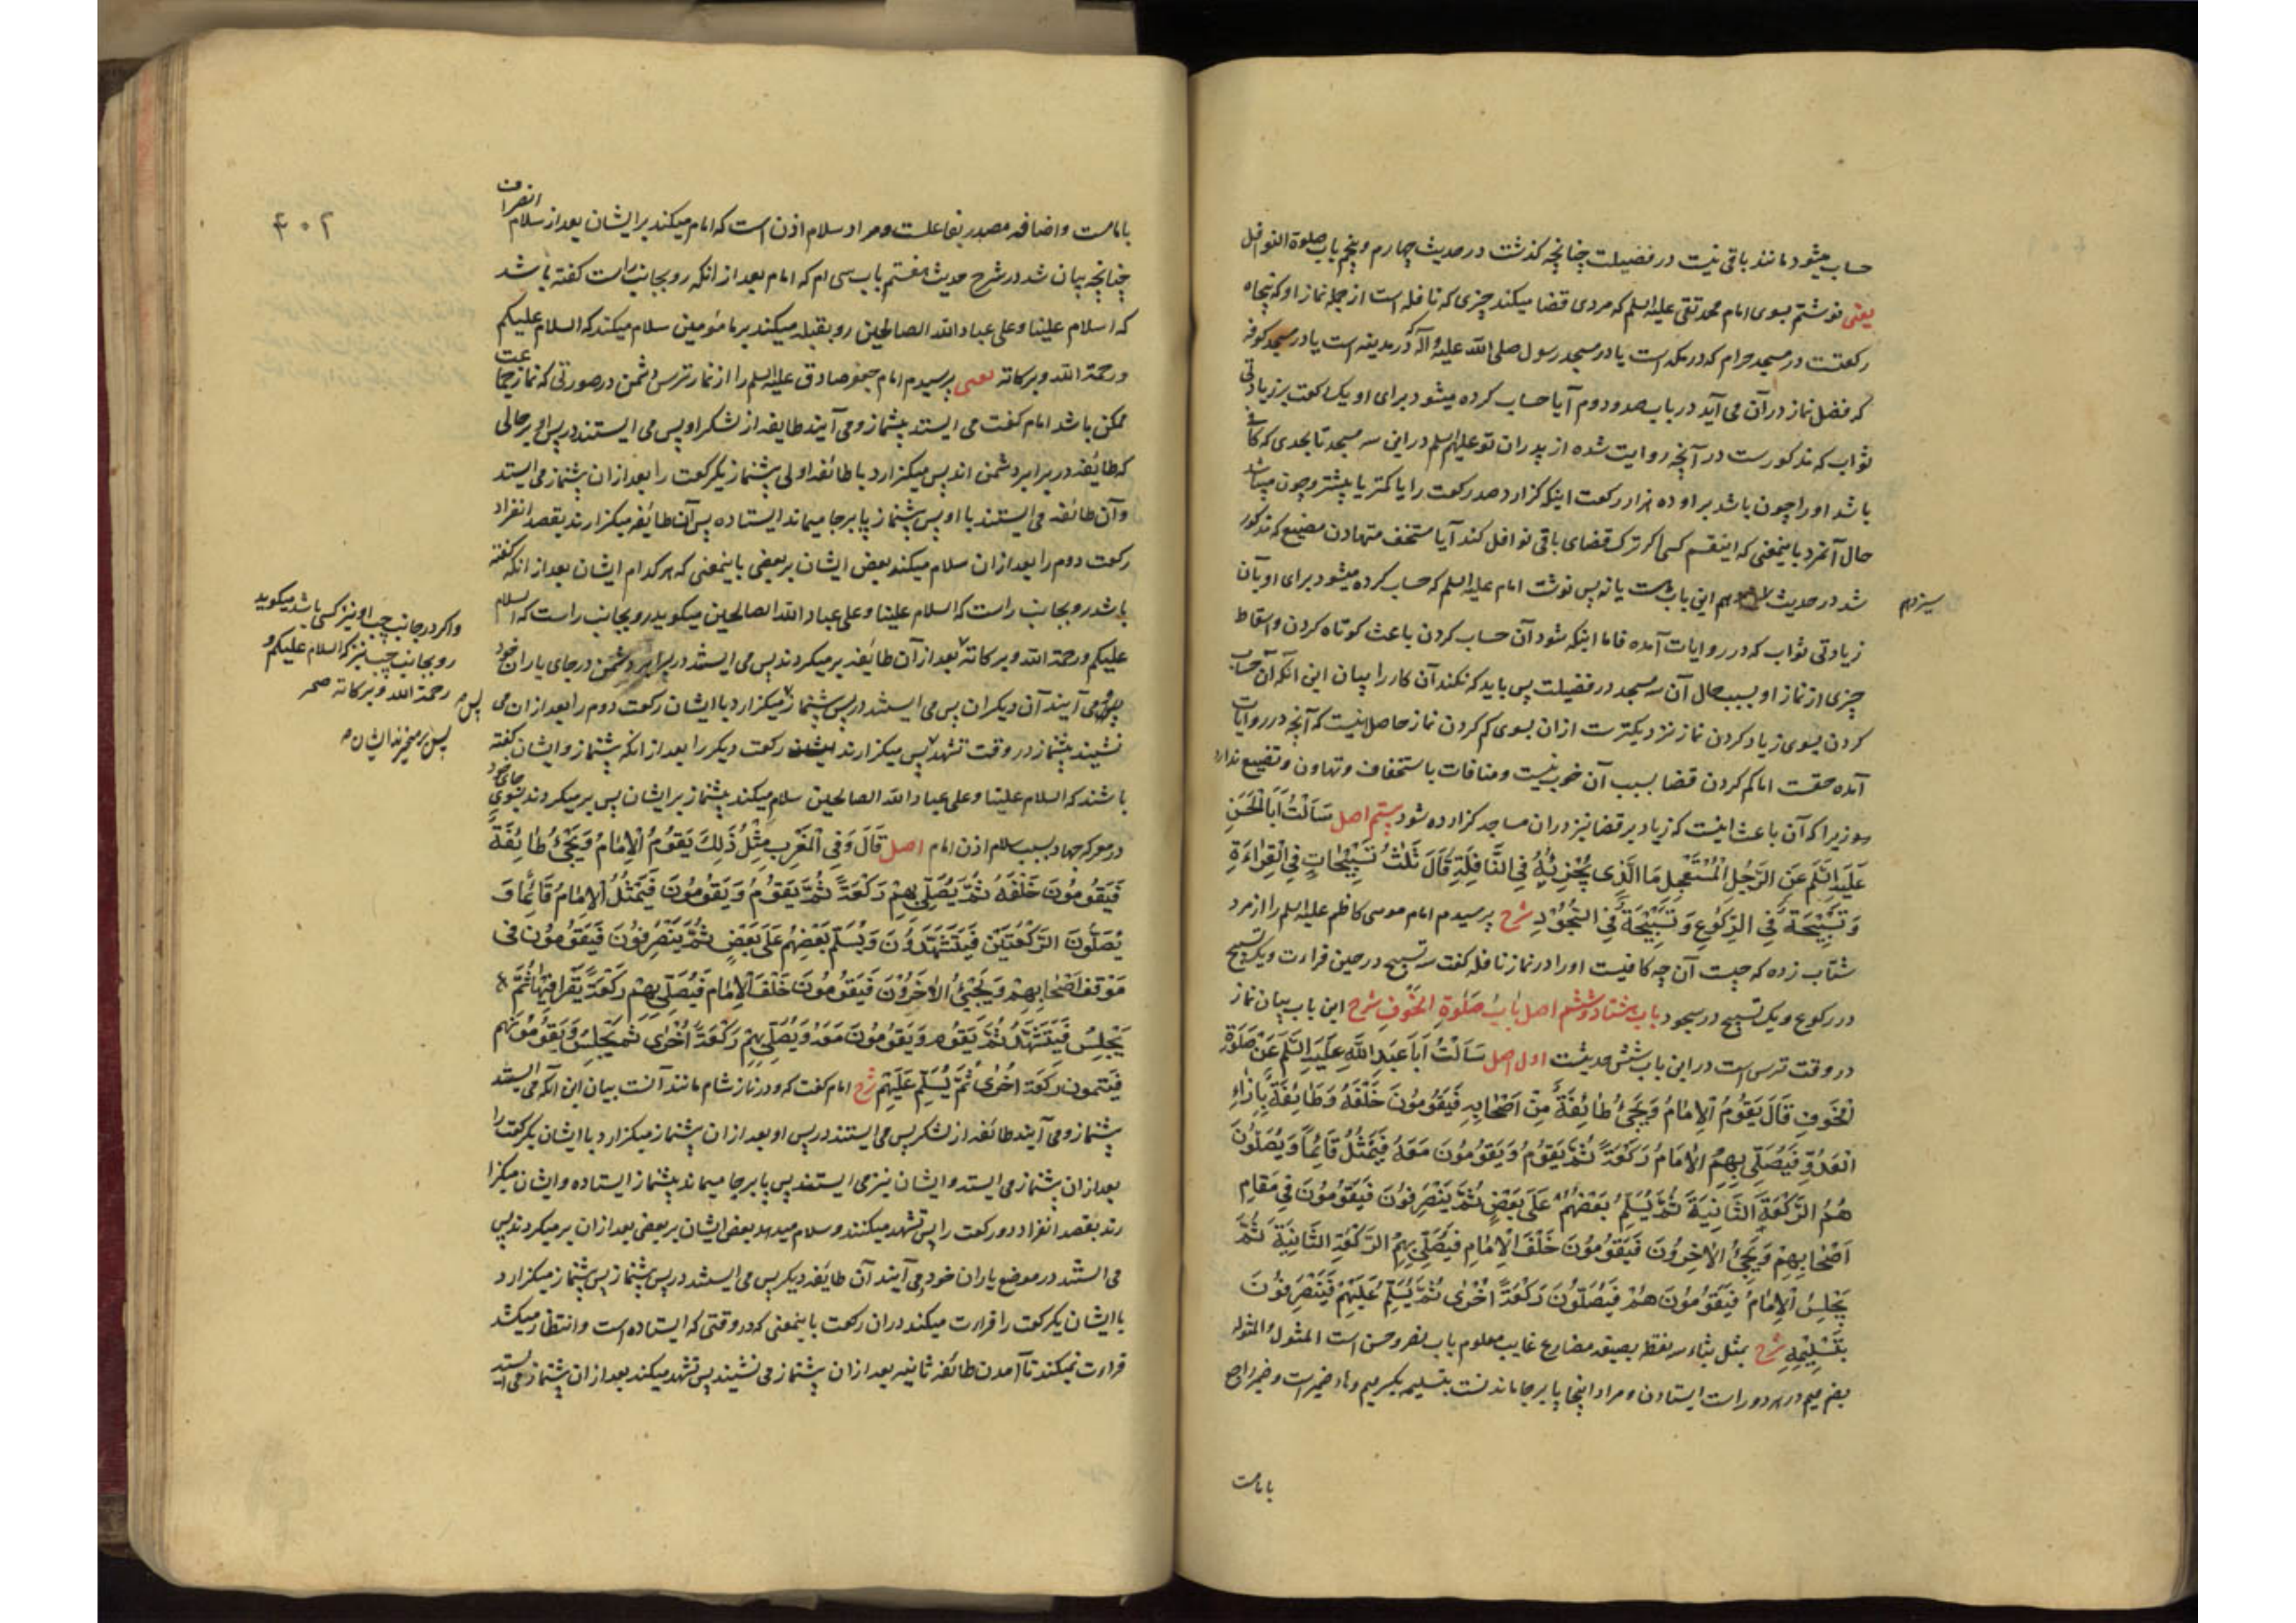 حساب میشود مانند باقی نیست در فضیلت چنانچه گذشت در حدیث چهارم و پنجم باب صلوة النوافل
یعنی نوشتم بسوی امام محمد تقی علیه السلم که مردی قضا میکند چیزی که نافله است از جمله نماز او که پنجاه
رکعتست در مسجد حرام که در مکه است یا در مسجد رسول صلی الله علیه و آله که در مدینه است یا در مسجد کوفه
که فضل نماز در آن می آید در باب صد و دوم آیا حساب کرده میشود برای او یک رکعت بر زیادتی
ثواب که مذکورست در آنچه روایت شده از پدران تو علیهم السلم در این سه مسجد تا بحدی که کافی
باشد او را چون باشد بر او ده هزار رکعت اینکه گزارد صد رکعت را یا کمتر یا بیشتر و چون میباشد
حال آنمرد باینمعنی که اینقسم کسی اگر ترک قضای باقی نوافل کند آیا مستخف متهاون مضیع که مذکور
شد در حدیث این باب هست یا نه پس نوشت امام علیه السلم که حساب کرده میشود برای او بآن
سیزدهم
زیادتی ثواب که در روایات آمده فاما اینکه شود آن حساب کردن باعث کوتاه کردن و اسقاط
چیزی از نماز او بسبب حال آن سه مسجد در فضیلت پس باید که نکند آن کار را بیان این آنکه آن حساب
کردن بسوی زیاد کردن نماز نزدیکترست ازان بسوی کم کردن نماز حاصل اینست که آنچه در روایات
آمده حقست اما کم کردن قضا بسبب آن خوب نیست و منافات با استخفاف و تهاون و تضییع ندارد
سوزیرا که آن باعث اینست که زیاد بر قضا نیز در ان مساجد گزارده شود بیستم اصل سَأَلْتُ أَبَا الْحَسَنِ
عَلَیْهِ السَّلَم عَنِ الرَّجُلِ الْمُسْتَعْجِلِ مَا الَّذِی یُجْزِئُهُ فِی النَّافِلَةِ قَالَ ثَلٰثُ تَسْبِیْحَاتٍ فِی الْقِرَاءَةِ
وَ تَسْبِیْحَةٌ فِی الرُّکُوعِ وَ تَسْبِیْحَةٌ فِی السُّجُوْدِ شرح پرسیدم امام موسی کاظم علیه السلم را از مرد
شتاب زده که چیست آن چه کافیست او را در نماز نافله گفت سه تسبیح در حین قراءت و یک تسبیح
در رکوع و یک تسبیح در سجود باب هشتاد و ششم اصل بَابُ صَلٰوةِ الخَوفِ شرح این باب بیان نماز
در وقت ترس است در این باب شش حدیثست اول اصل سَأَلْتُ أَبَا عَبْدِ اللّٰهِ عَلَیْهِ السَّلَم عَنْ صَلٰوةِ
الْخَوفِ قَالَ یَقُومُ الْاِمَامُ وَ یَجِیْءُ طَائِفَةٌ مِنْ اَصْحَابِهِ فَیَقُومُونَ خَلْفَهُ وَ طَائِفَةٌ بِاِزَاءِ
الْعَدُوِّ فَیُصَلِّی بِهِمُ الْاِمَامُ رَکْعَةً ثُمَّ یَقُوْمُ وَ یَقُومُونَ مَعَهُ فَیَمْثُلُ قَائِمًا وَ یُصَلُّونَ
هُمُ الرَّکْعَةَ الثَّانِیَةَ ثُمَّ یُسَلِّمُ بَعْضُهُمْ عَلَی بَعْضٍ ثُمَّ یَنْصَرِفُوْنَ فَیَقُوْمُوْنَ فِی مَقَامِ
اَصْحَابِهِمْ وَ یَجِیْءُ الْاٰخَرُونَ فَیَقُوْمُوْنَ خَلْفَ الْاِمَامِ فَیُصَلِّی بِهِمُ الرَّکْعَةَ الثَّانِیَةَ ثُمَّ
یَجْلِسُ الْاِمَامُ فَیَقُوْمُوْنَ هُمْ فَیُصَلُّوْنَ رَکْعَةً اُخْرٰی ثُمَّ یُسَلِّمُ عَلَیْهِمْ فَیَنْصَرِفُوْنَ
بِتَسْلِیْمِهِ شرح یمثل بثاء سه نقطه بصیغه مضارع غایب معلوم باب نصر و حسن است المثول و المثوله
بضم میم در هر دو راست ایستادن و مراد اینجا پابرجا ماندنست بتسلیمه بکسر میم و هاء ضمیر است و ضمیر راجع
بامامست
۴۰۲
بامامست و اضافه مصدر بفاعلست و مراد سلام اذن است که امام میکند بر ایشان بعد از سلام انصراف
چنانچه بیان شد در شرح حدیث هفتم باب سی ام که امام بعد از انکه رو بجانب راست گفته باشد
که السلام علینا و علی عباد الله الصالحین رو بقبله میکند بر مامومین سلام میکند که السلام علیکم
و رحمة الله و برکاته یعنی پرسیدم امام جعفر صادق علیه السلم را از نماز ترس دشمن در صورتی که نماز جماعت
ممکن باشد امام گفت می ایستد پیشنماز و می آیند طایفه از لشکر او پس می ایستند در پس او بر حالی
که طایفه در برابر دشمن اند پس میگزارد با طائفه اولی پیشنماز یک رکعت را بعد ازان پیشنماز می ایستد
و آن طائفه می ایستند با او پس پیشنماز پابرجا میماند ایستاده پس آن طائفه میگزارند بقصد انفراد
رکعت دوم را بعد ازان سلام میکند بعض ایشان بر بعضی باینمعنی که هر کدام ایشان بعد از انکه گفته
باشد رو بجانب راست که السلام علینا و علی عباد الله الصالحین میگوید رو بجانب راست که السلام
علیکم و رحمة الله و برکاته بعد از آن طائفه برمیگردند پس می ایستند در برابر دشمن در جای یاران خود
و می آیند آن دیگران پس می ایستند در پس پیشنماز میگزارد با ایشان رکعت دوم را بعد ازان می
نشیند پیشنماز در وقت تشهد پس میگزارند ایشان رکعت دیگر را بعد از انکه پیشنماز و ایشان گفته
باشند که السلام علینا و علی عباد الله الصالحین سلام میکند پیشنماز بر ایشان پس بر میگردند بسوی جای خود
در معرکه جهاد بسبب سلام اذن امام اصل قَالَ وَ فِی الْمَغْرِبِ مِثْلُ ذٰلِكَ یَقُومُ الْاِمَامُ وَ یَجِیْءُ طَائِفَةٌ
فَیَقُومُونَ خَلْفَهُ ثُمَّ یُصَلِّی بِهِمْ رَکْعَةً ثُمَّ یَقُوْمُ وَ یَقُومُونَ فَیَمْثُلُ الْاِمَامُ قَائِمًا وَ
یُصَلُّونَ الرَّکْعَتَیْنِ فَیَتَشَهَّدُوْنَ وَ یُسَلِّمُ بَعْضُهُمْ عَلَی بَعْضٍ ثُمَّ یَنْصَرِفُوْنَ فَیَقُوْمُوْنَ فی
مَوْقِفِ اَصْحَابِهِمْ وَ یَجِیْءُ الْاٰخَرُوْنَ فَیَقُومُونَ خَلْفَ الْاِمَامِ فَیُصَلِّی بِهِمْ رَکْعَةً یَقْرَأُ فِیْهَا ثُمَّ
یَجْلِسُ فَیَتَشَهَّدُ ثُمَّ یَقُوْمُ وَ یَقُومُونَ مَعَهُ وَ یُصَلِّی بِهِمْ رَکْعَةً اُخْرٰی ثُمَّ یَجْلِسُ وَ یَقُومُوْنَ هُم
فَیُتِمُّونَ رَکْعَةً اُخْرٰی ثُمَّ یُسَلِّمُ عَلَیْهِمْ شرح امام گفت که و در نماز شام مانند آنست بیان این آنکه می ایستد
پیشنماز و می آیند طائفه از لشکر پس می ایستند در پس او بعد ازان پیشنماز میگزارد با ایشان یک رکعت را
بعد ازان پیشنماز می ایستد و ایشان نیز می ایستند پس پابرجا میماند پیشنماز ایستاده و ایشان میگزا
رند بقصد انفراد دو رکعت را پس تشهد میکنند و سلام میدهد بعض ایشان بر بعضی بعد ازان بر میگردند پس
می ایستند در موضع یاران خود و می آیند آن طایفه دیگر پس می ایستند در پس پیشنماز پس پیشنماز میگزارد
با ایشان یک رکعت را قراءت میکند در ان رکعت باینمعنی که در وقتی که ایستاده است و انتظار میکشد
قراءت نمیکند تا آمدن طائفه ثانیه بعد از ان پیشنماز می نشیند پس تشهد میکند بعد ازان پیشنماز می ایستد
و اگر در جانب چپ او نیز کسی باشد میگوید
رو بجانب چپ نیز که السلام علیکم و
رحمة الله و برکاته صح
پس
پس بر میخیزند ایشان